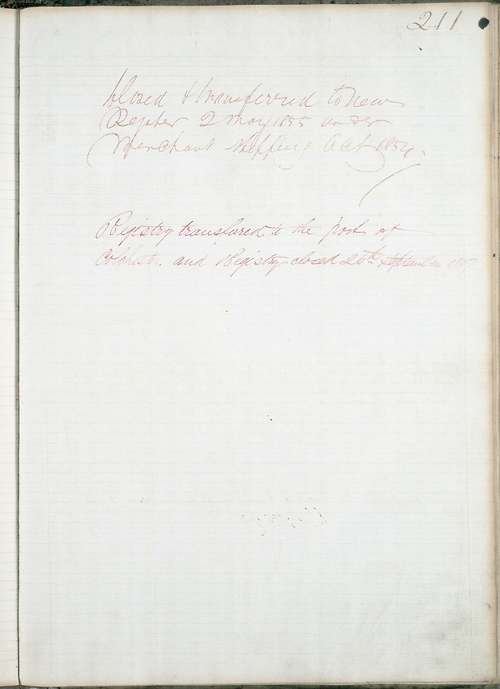 211
Closed & transferred to New
Register 2 May 1855 under
Merchant Shipping Act 1854.
Registry transferred to the port of
Colchester and Registry closed 26th September